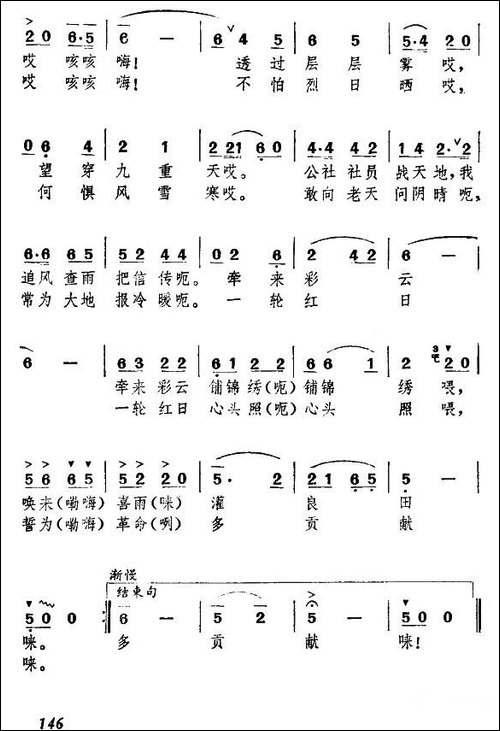 2 0 6·5 6 — 6 4 5 6 4 5 5·4 2 0
哎 咳咳 嗨! 透过 层层 雾哎,
哎 咳咳 嗨! 不怕 烈日 晒哎,
0 6 4 2 1 2 2 1 6 0 4·4 4 2 1 4 2·2
望 穿 九 重 天哎。 公社 社员 战天地,我
何 惧 风 雪 寒哎。 敢向 老天 问阴晴呃,
6·6 6 5 5 2 4 4 0 2 0 2 6 2 4 2 6 —
追风 查雨 把信 传呃。 牵 来 彩 云
常为 大地 报冷 暖呃。 一 轮 红 日
6 — 6 3 2 2 6 1 2 2 6 6 1 2 2 0
牵来 彩云 铺锦 绣(呃) 铺锦 绣 喂,
一轮 红日 心头 照(呃) 心头 照 喂,
5 6 6 5 5 2 2 0 5· 2 2 1 6 5 5 —
唤来(嘞嗨) 喜雨(咪) 灌 良 田
誓为(嘞嗨) 革命(咧) 多 贡 献
渐慢
结束句
5 0 0 6 — 5 2 5 — 5 0 0
咪。 多 贡 献 咪!
咪。
146